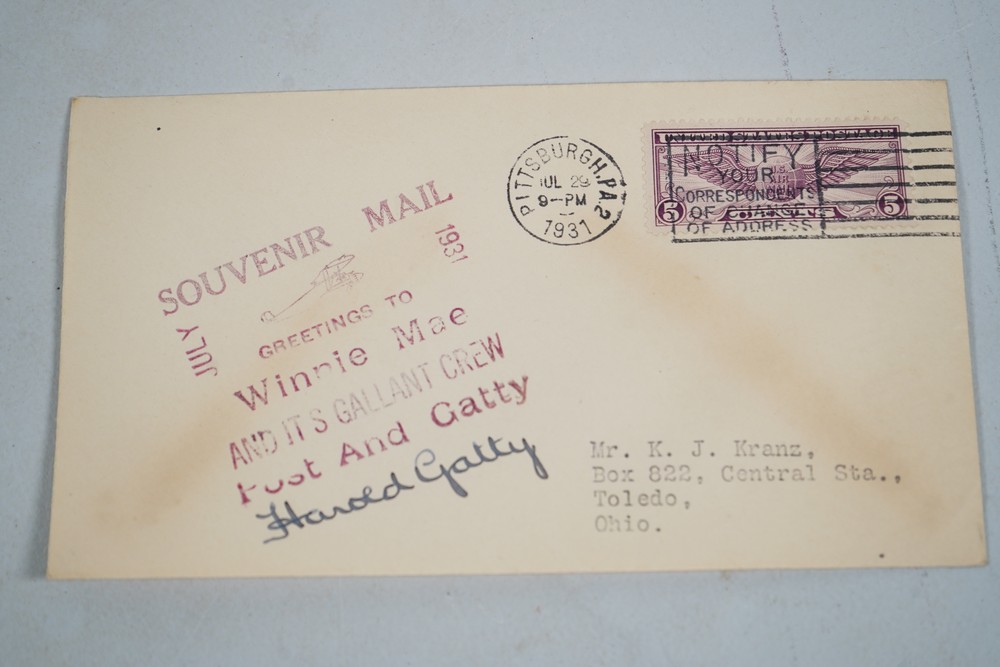 SOUVENIR MAIL
JULY 1931
GREETINGS TO
Winnie Mae
AND IT'S GALLANT CREW
Post And Gatty
Harold Gatty
PITTSBURGH, PA. 2
JUL 29
9-PM
1931
UNITED STATES POSTAGE
U.S.
AIR
5 5
NOTIFY
YOUR
CORRESPONDENTS
OF CHANGE
OF ADDRESS
Mr. K. J. Kranz,
Box 822, Central Sta.,
Toledo,
Ohio.